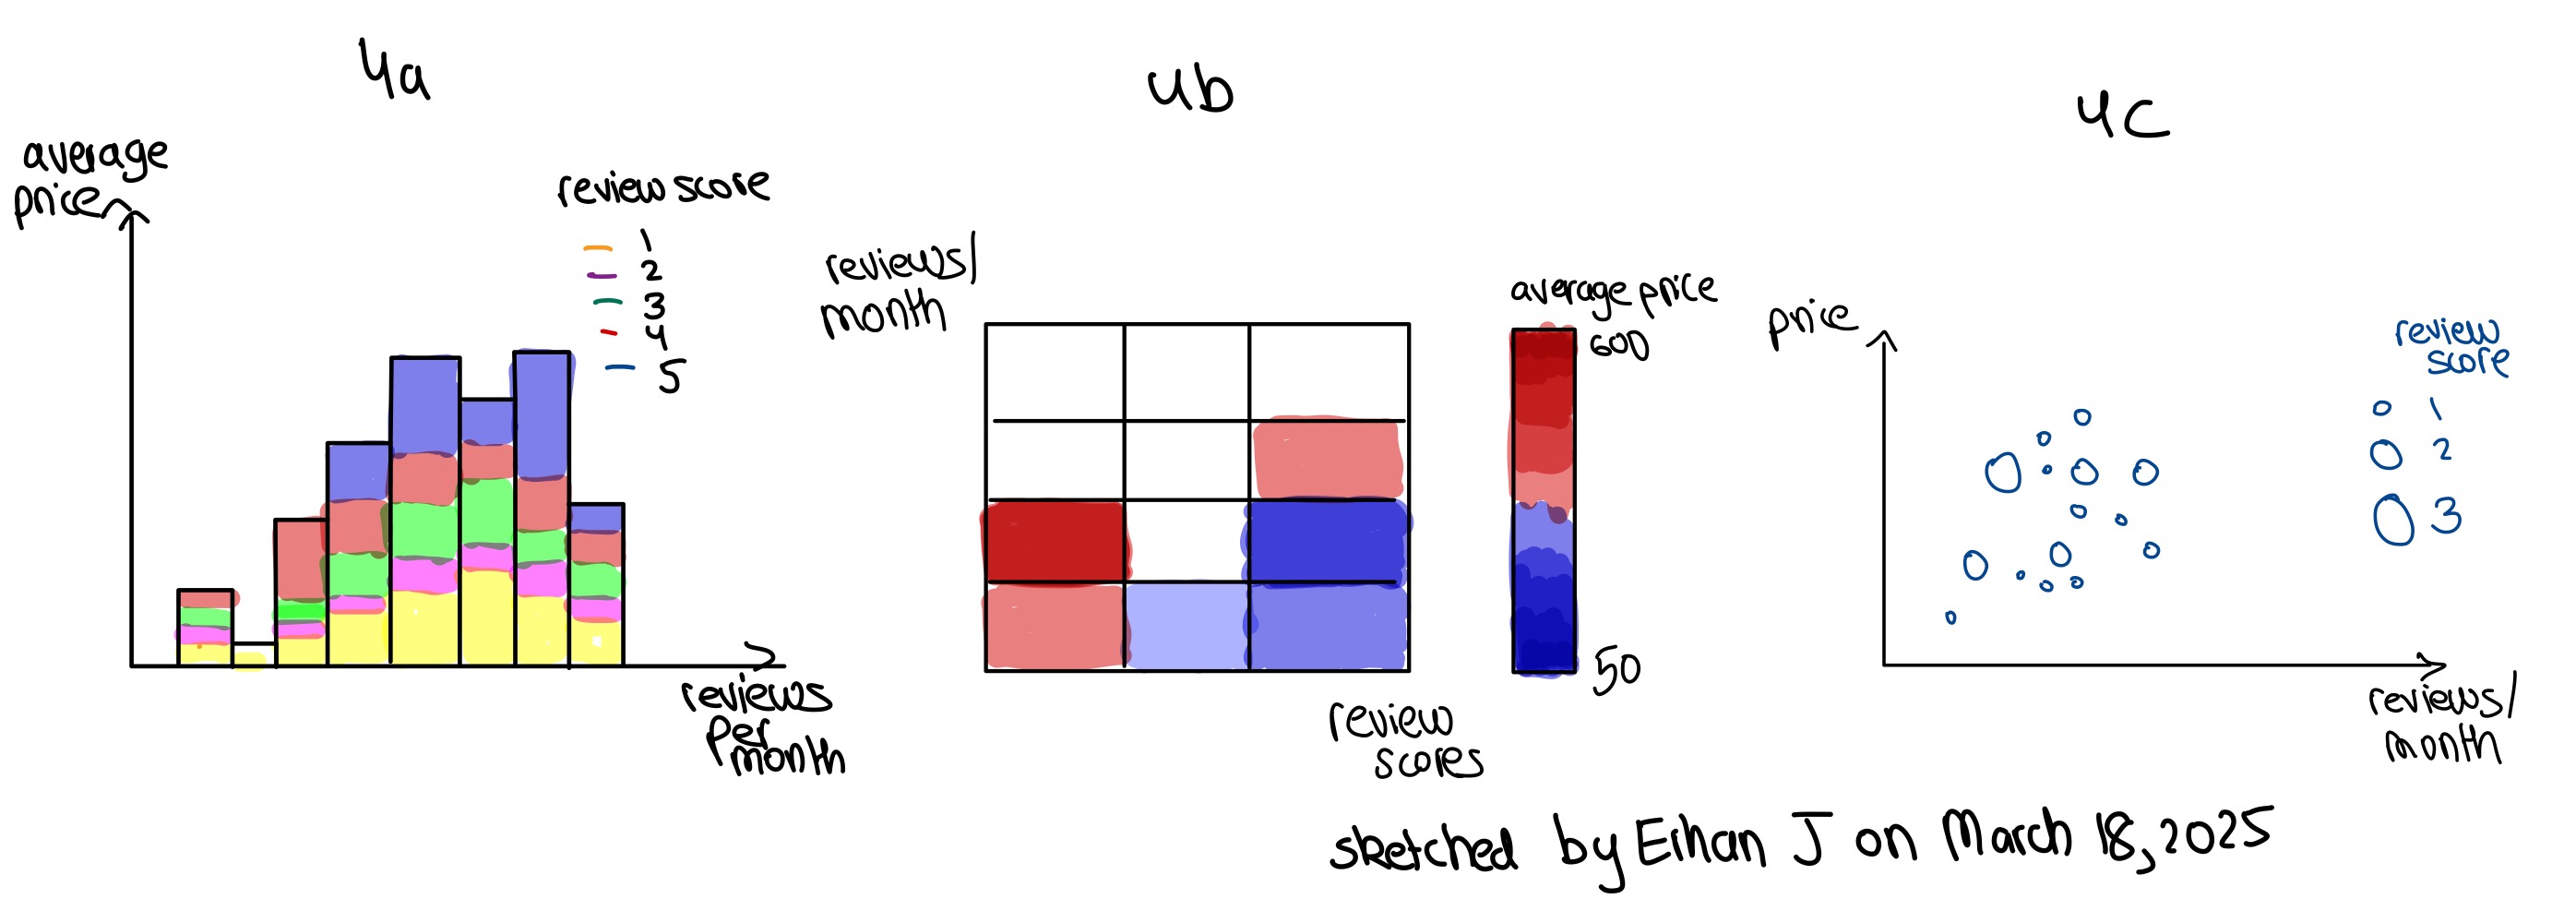 4a
average
price
review score
1
2
3
4
5
reviews
per
month
4b
reviews/
month
average price
600
50
review
scores
4c
price
review
score
1
2
3
reviews/
month
sketched by Ethan J on March 18, 2025